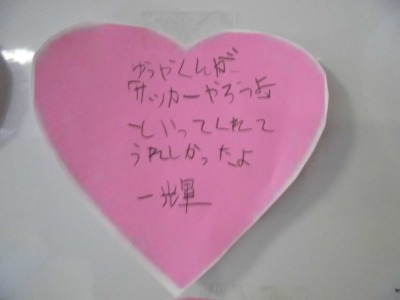 ゆうやくんが
サッカーやろうよ
といってくれて
うれしかったよ
一輝